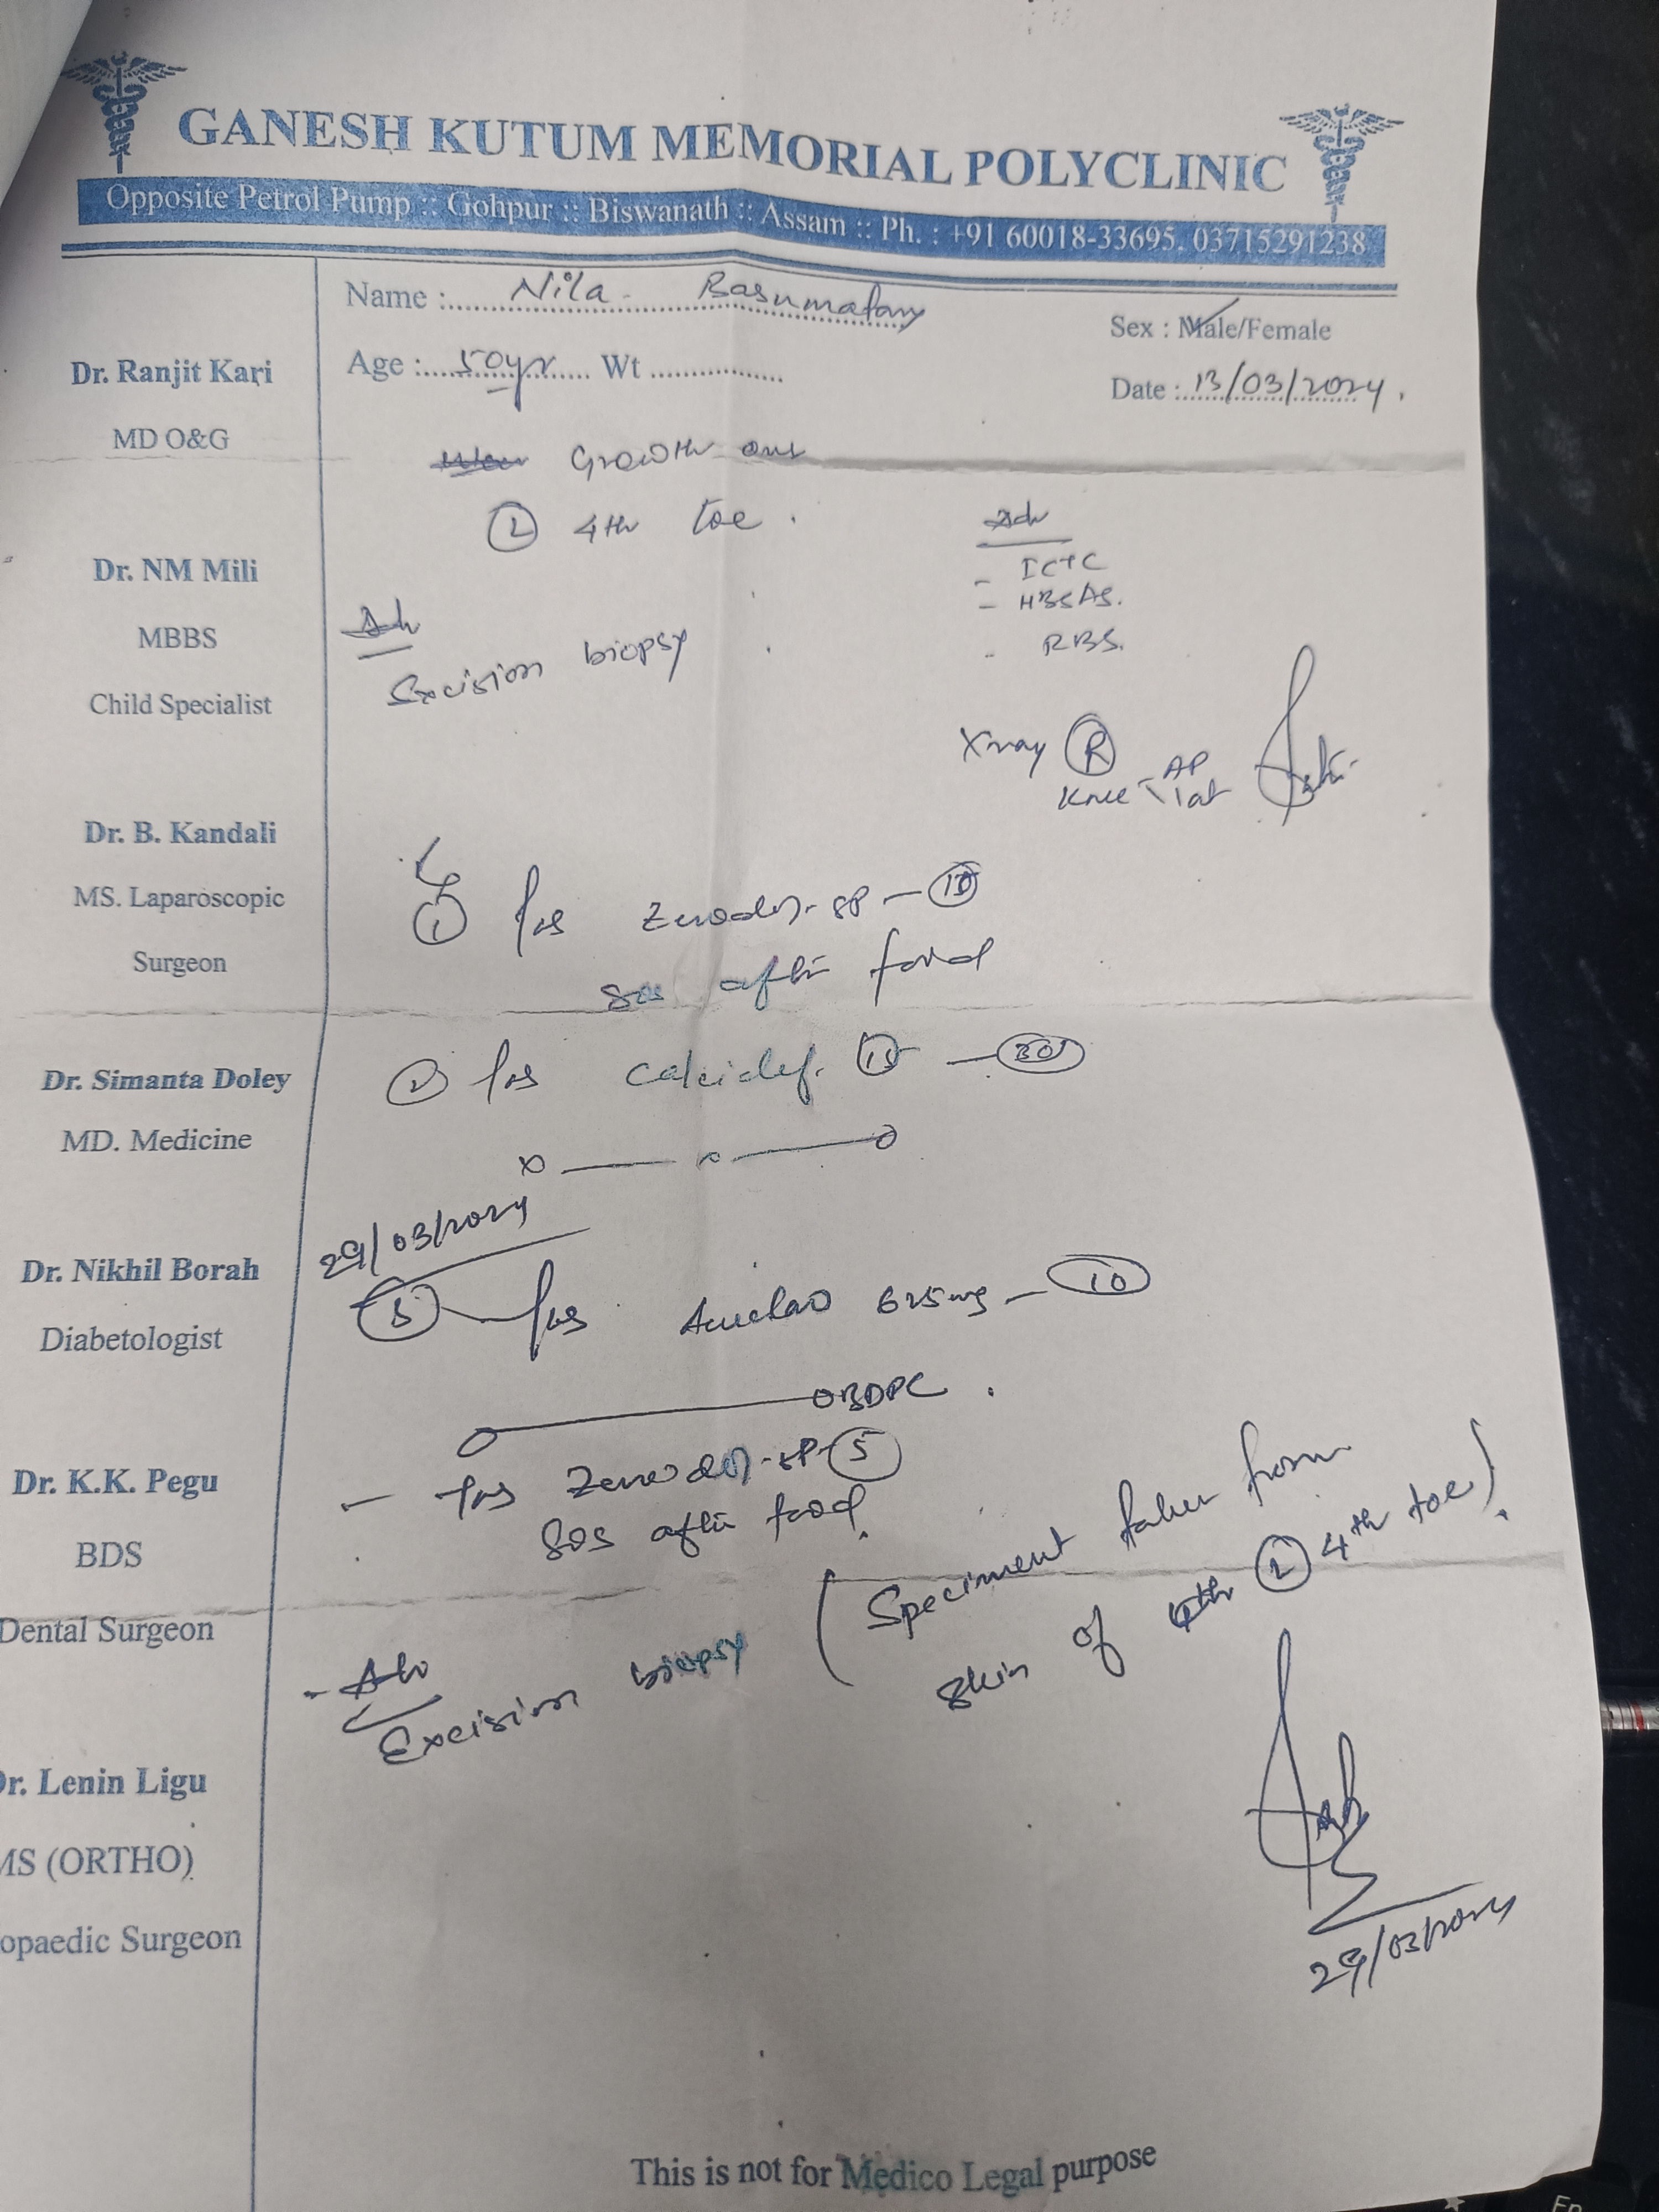 GANESH KUTUM MEMORIAL POLYCLINIC
Opposite Petrol Pump :: Gohpur :: Biswanath :: Assam :: Ph. : +91 60018-33695, 03715291238
Name : Nila Basumatary
Sex : Male/Female
Age : 50yr Wt
Date : 13/03/2024
Dr. Ranjit Kari
MD O&G
Dr. NM Mili
MBBS
Child Specialist
Dr. B. Kandali
MS. Laparoscopic
Surgeon
Dr. Simanta Doley
MD. Medicine
Dr. Nikhil Borah
Diabetologist
Dr. K.K. Pegu
BDS
Dental Surgeon
Dr. Lenin Ligu
MS (ORTHO)
opaedic Surgeon
Growth
L 4th toe.
Adv
- ICTC
- HBSAg.
- RBS.
Adv
Excision biopsy
Xray R
Knee AP
lat
1 Zerodol-SP - 10
SOS after food
2 15 - 30
29/03/2024
625mg - 10
Zerodol-SP 5
SOS after food.
- Adv
Excision biopsy
(Speciment taken from
skin of L 4th toe).
29/03/2024
This is not for Medico Legal purpose